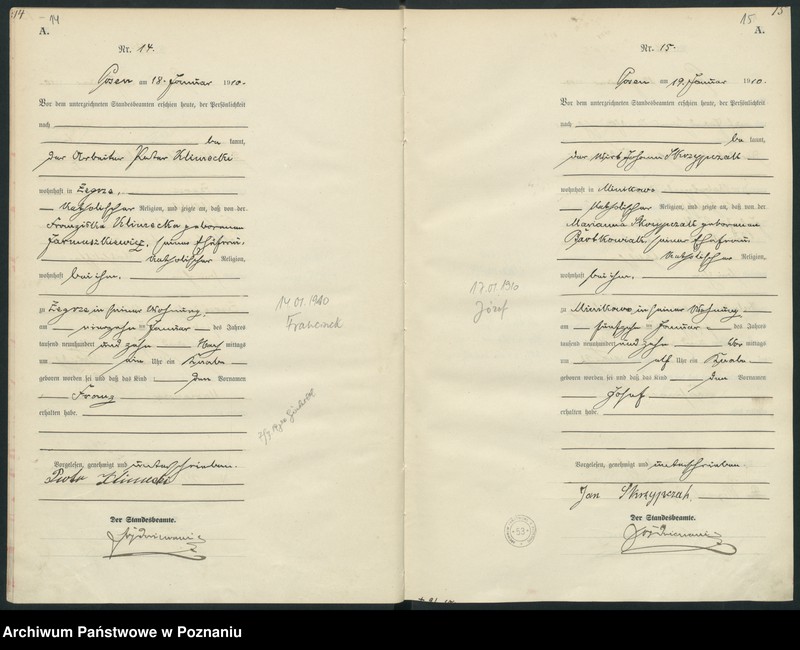 14
14
A.
Nr. 14.
Posen am 18. Januar 1910.
Vor dem unterzeichneten Standesbeamten erschien heute, der Persönlichkeit
nach
be kannt,
der Arbeiter Peter Klimecki
wohnhaft in Zegrze,
katholischer Religion, und zeigte an, daß von der
Franziska Klimecka geborenen
Jarmuszkiewicz, seiner Ehefrau,
katholischer Religion,
wohnhaft bei ihm,
zu Zegrze in seiner Wohnung,
am vierzehnten Januar des Jahres
tausend neunhundert und zehn Nachmittags
um Uhr ein Knabe
geboren worden sei und daß das Kind den Vornamen
Franz
erhalten habe.
Vorgelesen, genehmigt und unterschrieben.
Piotr Klimecki
Der Standesbeamte.
14 01.1910
Franciszek
15
15
A.
Nr. 15.
Posen am 19. Januar 1910.
Vor dem unterzeichneten Standesbeamten erschien heute, der Persönlichkeit
nach
be kannt,
der Wirt Johann Skrzypczak
wohnhaft in Minikowo
katholischer Religion, und zeigte an, daß von der
Marianna Skrzypczak geborenen
Bartkowiak, seiner Ehefrau,
katholischer Religion,
wohnhaft bei ihm,
zu Minikowo in seiner Wohnung,
am Januar des Jahres
tausend neunhundert und zehn Vor mittags
um elf Uhr ein Knabe
geboren worden sei und daß das Kind den Vornamen
Josef
erhalten habe.
Vorgelesen, genehmigt und unterschrieben
Jan Skrzypczak.
Der Standesbeamte.
17.01.1910
Józef
53
Archiwum Państwowe w Poznaniu